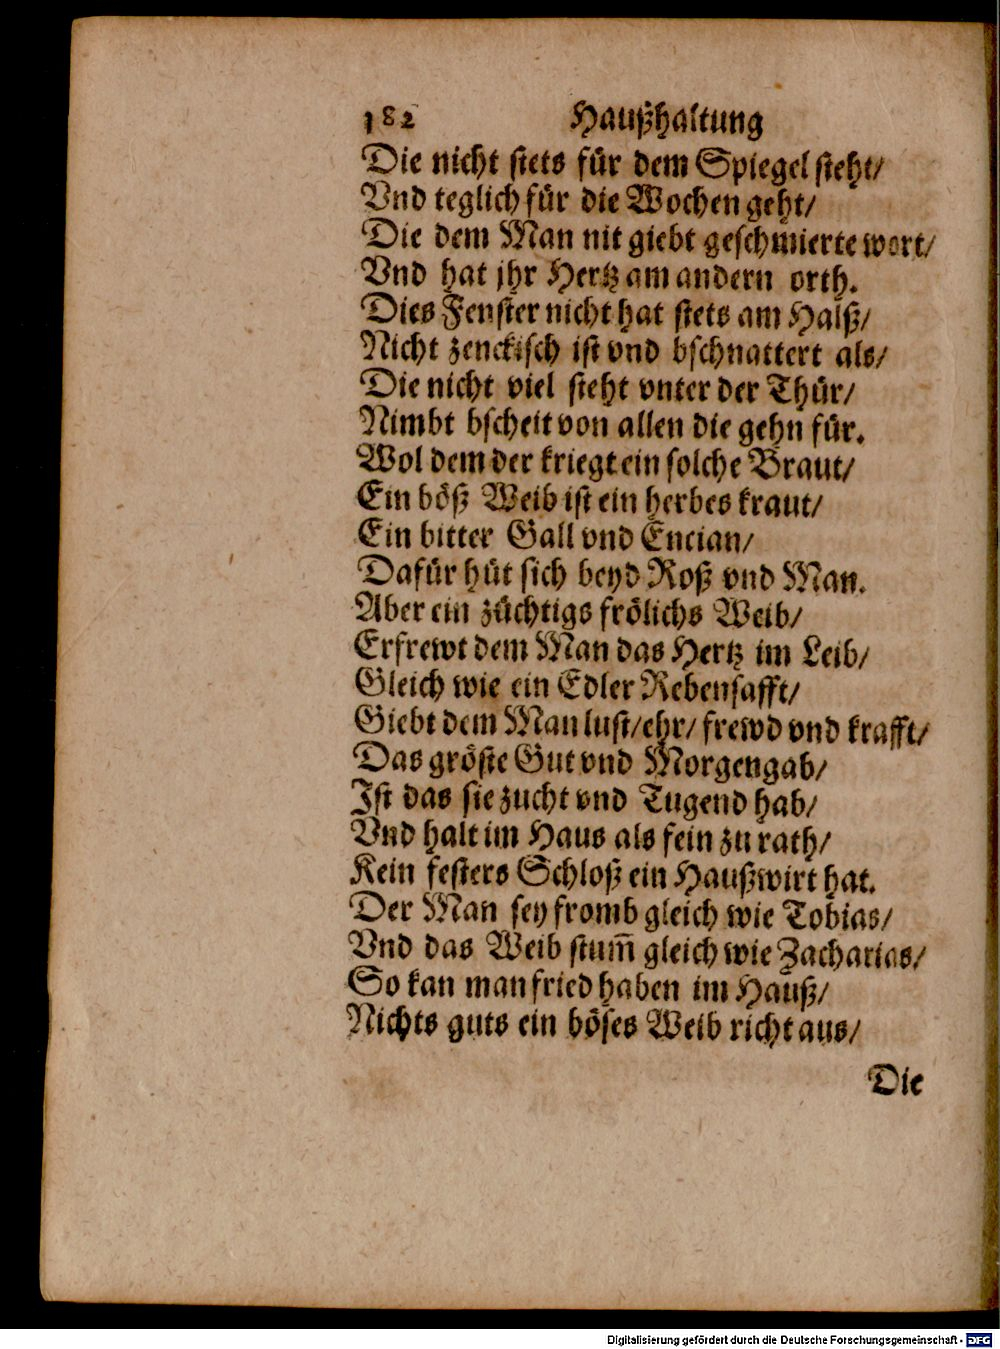 182 Haußhaltung
Die nicht stets für dem Spiegel steht/
Vnd teglich für die Wochen geht/
Die dem Man nit giebt geschmierte wort/
Vnd hat jhr Hertz am andern orth.
Dies Fenster nicht hat stets am Halß/
Nicht zenckisch ist vnd bschnattert als/
Die nicht viel steht vnter der Thür/
Nimbt bscheit von allen die gehn für.
Wol dem der kriegt ein solche Braut/
Ein böß Weib ist ein herbes kraut/
Ein bitter Gall vnd Encian/
Dafür hüt sich beyd Roß vnd Man.
Aber ein züchtigs frölichs Weib/
Erfrewt dem Man das Hertz im Leib/
Gleich wie ein Edler Rebensafft/
Giebt dem Man lust/ehr/ frewd vnd krafft/
Das gröste Gut vnd Morgengab/
Ist das sie zucht vnd Tugend hab/
Vnd halt im Haus als fein zu rath/
Kein festers Schloß ein Haußwirt hat.
Der Man sey fromb gleich wie Tobias/
Vnd das Weib stum̅ gleich wie Zacharias/
So kan man fried haben im Hauß/
Nichts guts ein böses Weib richt aus/
Die
Digitalisierung gefördert durch die Deutsche Forschungsgemeinschaft - DFG